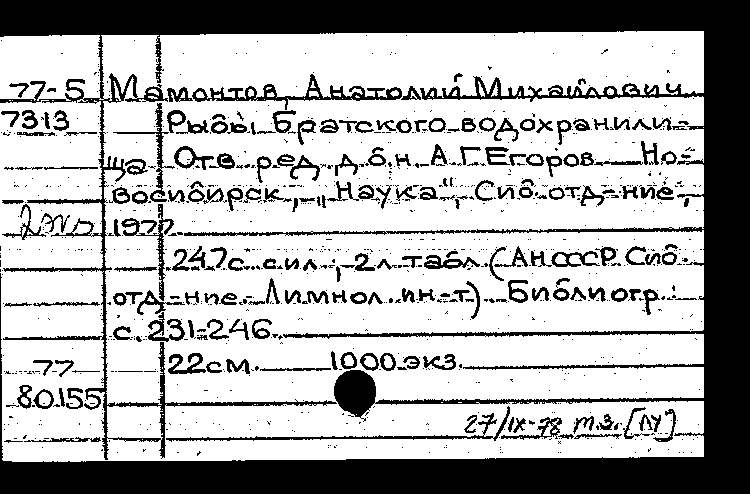 77-5 Мамонтов, Анатолий Михайлович
7313 Рыбы Братского водохранили-
ща Отв. ред. д.б.н. А.Г.Егоров. Но-
восибирск, „Наука", Сиб. отд-ние,
2 экз 1977
247с. с ил.; 2 л. табл. (АН СССР. Сиб.
отд-ние. Лимнол. ин-т). Библиогр.:
с. 231-246.
77 22см. 1000 экз.
80155
27/IX-78 т.з. [ЛУ]